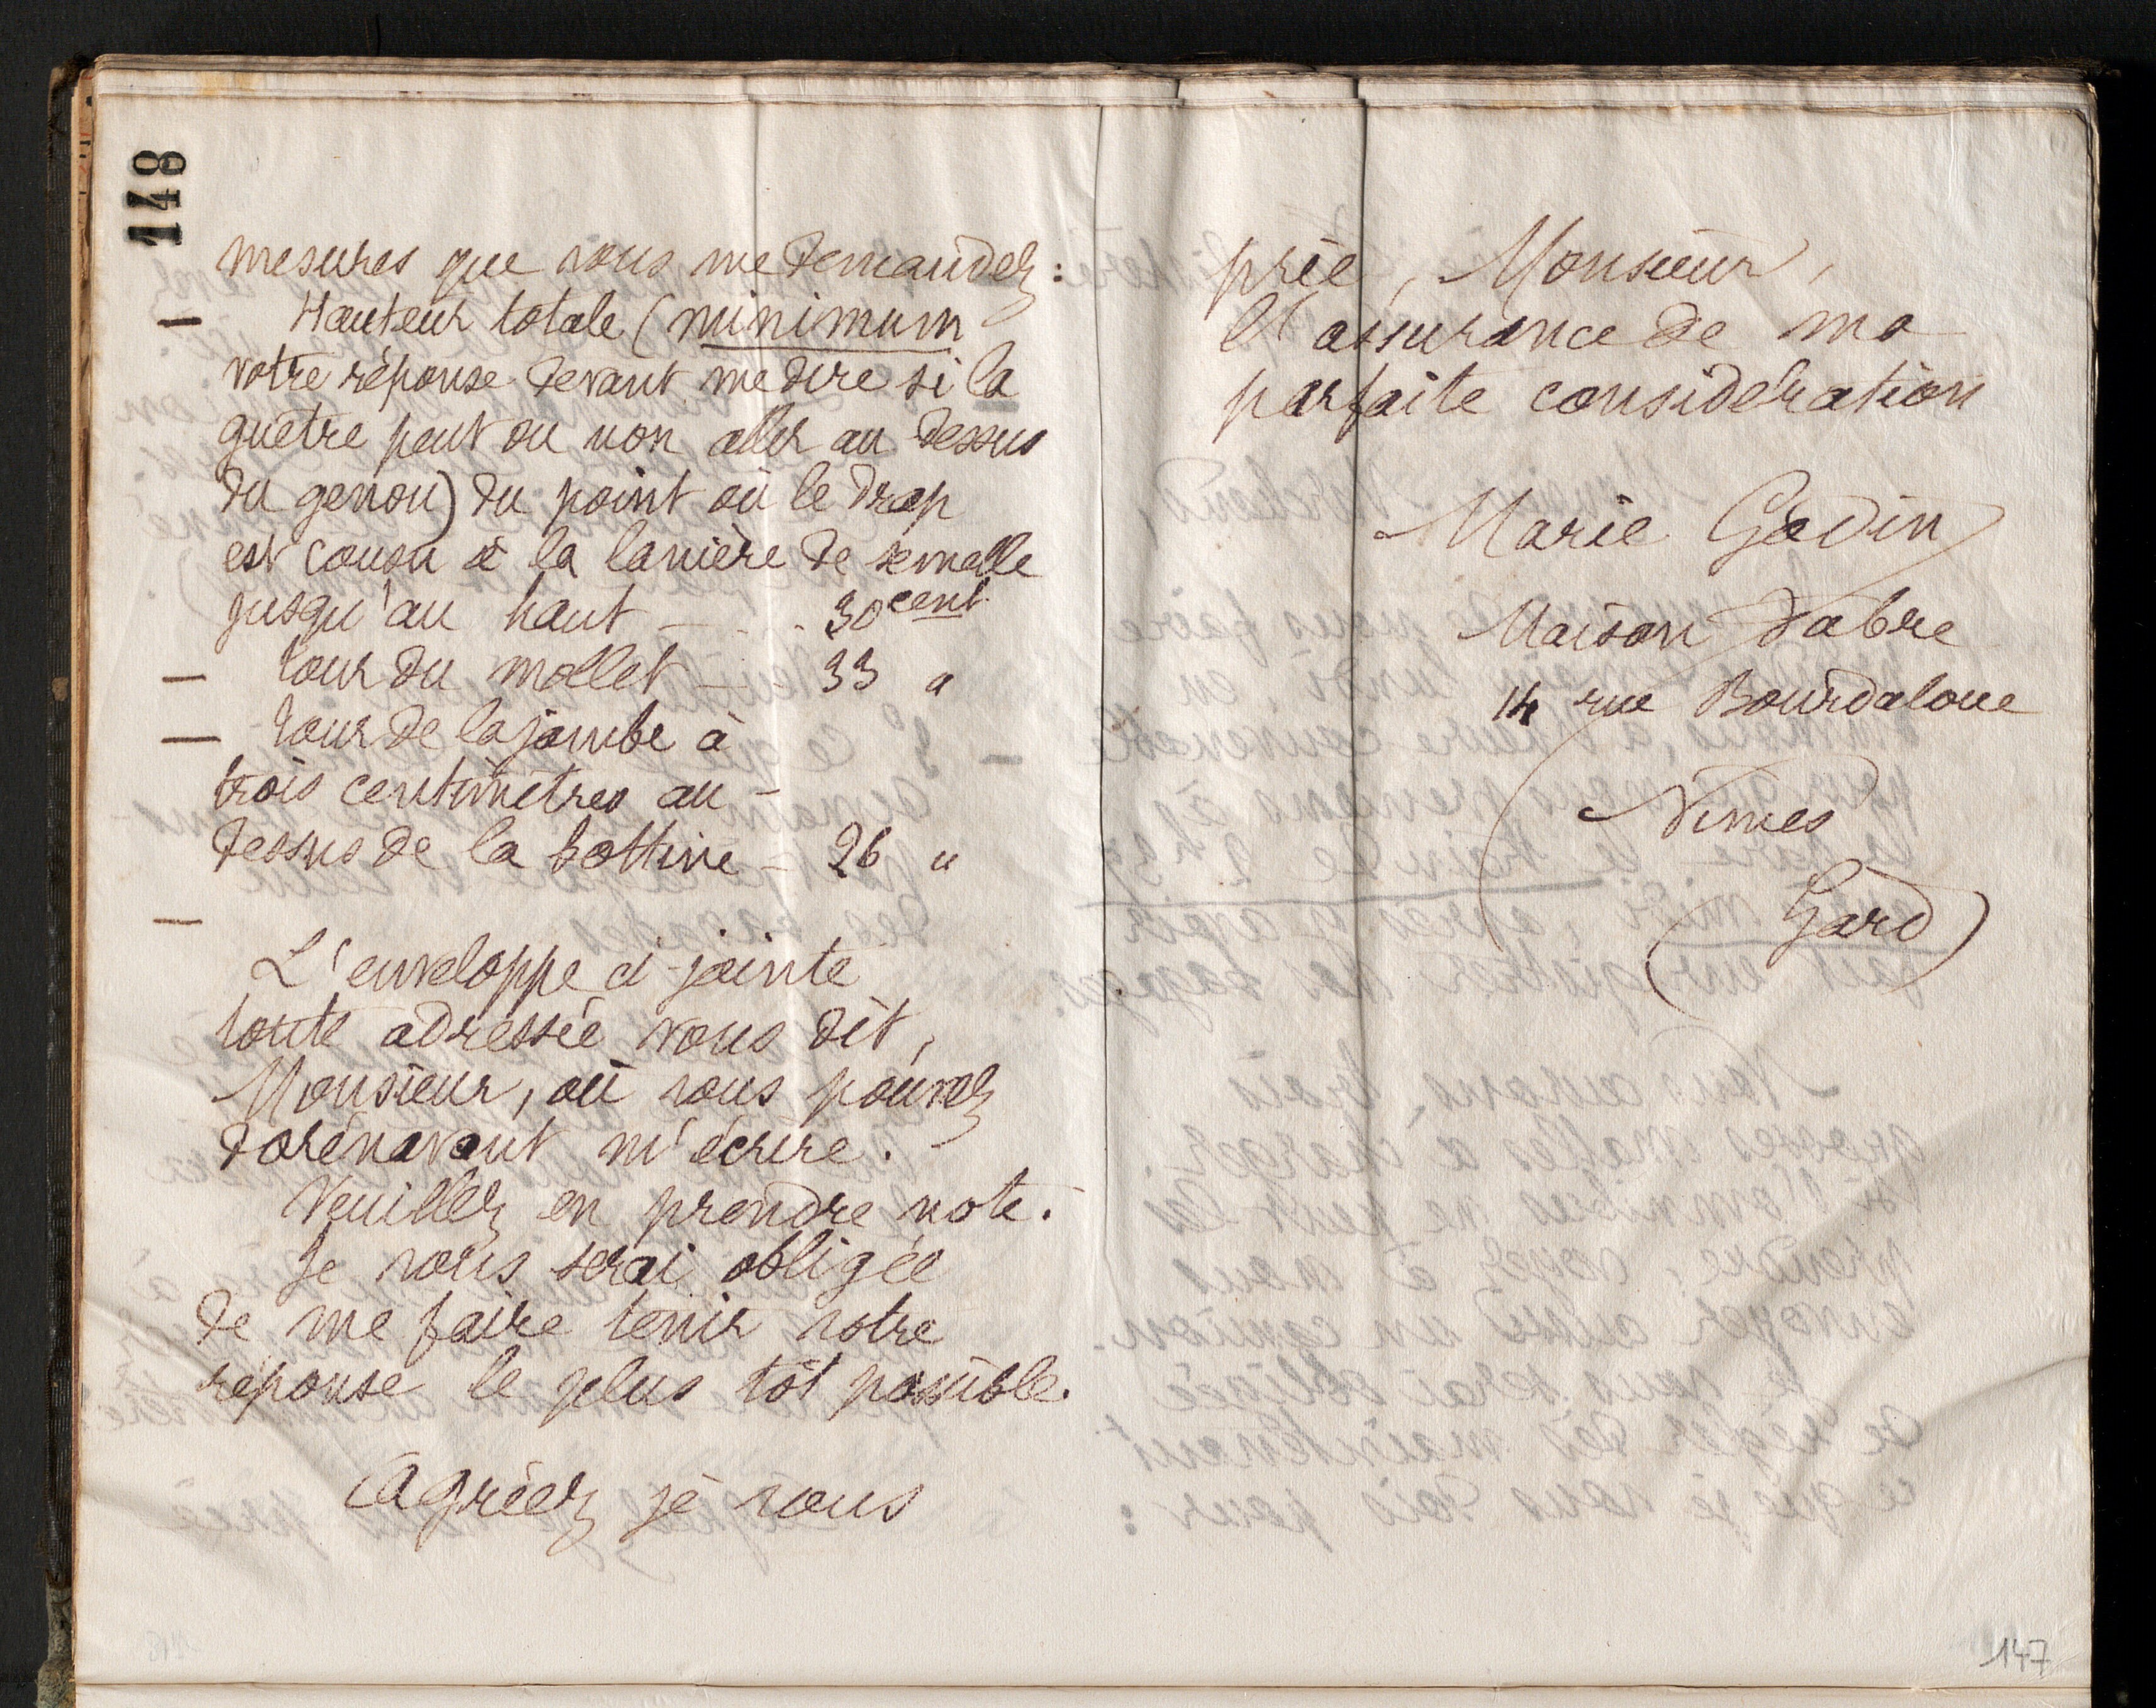 148
mesures que vous me demandez :
— Hauteur totale (minimum
votre réponse devant me dire si la
guêtre peut ou non aller au dessus
du genou) du point où le drap
est cousu à la lanière de semelle
jusqu'au haut — . . . 30 cent
— tour du mollet — . . 33 "
— tour de la jambe à
trois centimètres au-
dessus de la bottine — 26 "
—
L'enveloppe ci-jointe
toute adressée vous dit,
Monsieur, où vous pouvez
dorénavant m'écrire.
Veuillez en prendre note.
Je vous serai obligée
de me faire tenir votre
réponse le plus tôt possible.
Agréez je vous
prie, Monsieur,
l'assurance de ma
parfaite considération
Marie Godin
Maison Fabre
14 rue Bourdaloue
Nimes
(Gard)
147